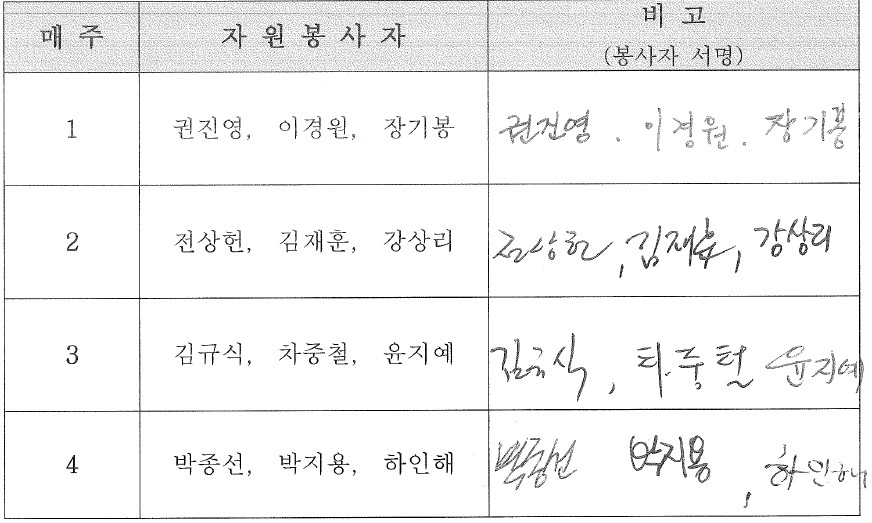 매 주 자 원 봉 사 자 비 고
(봉사자 서명)
1 권진영, 이경원, 장기봉 권진영 . 이경원 . 장기봉
2 전상헌, 김재훈, 강상리 전상헌, 김재훈, 강상리
3 김규식, 차중철, 윤지예 김규식, 차중철 윤지예
4 박종선, 박지용, 하인해 박종선 박지용, 하인해